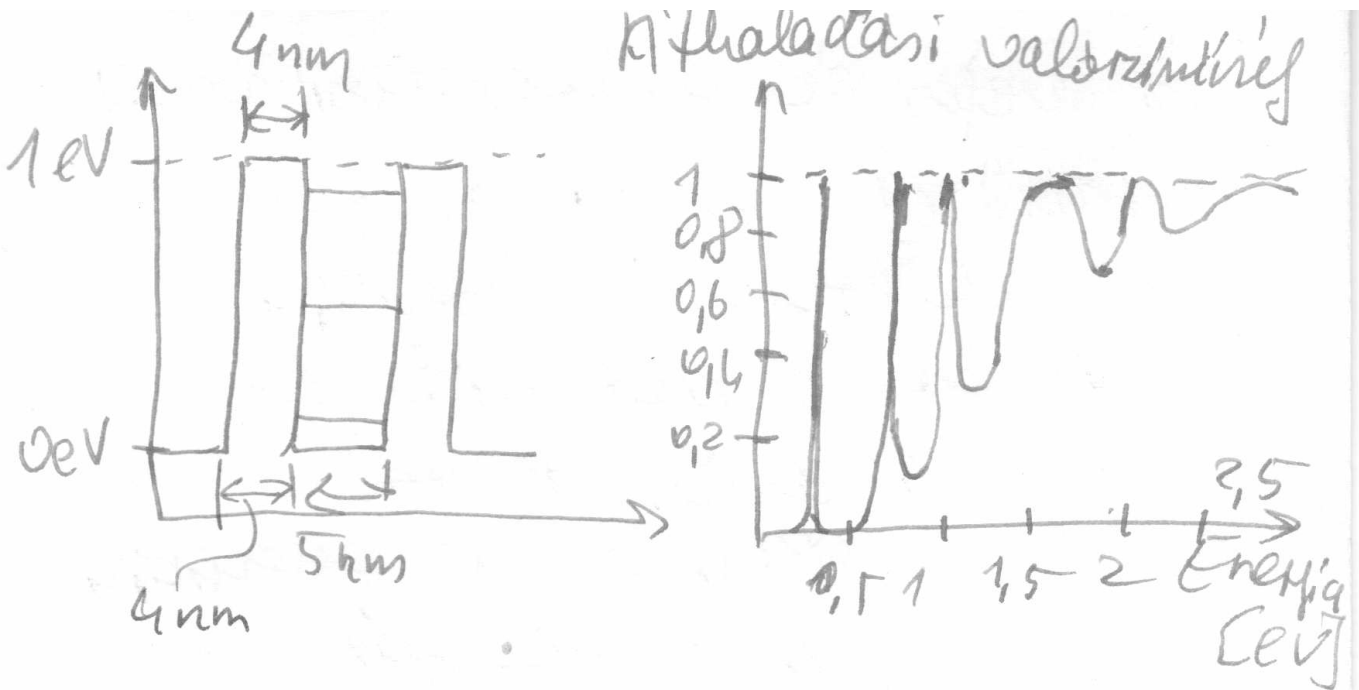 4nm
1eV
0eV
5nm
4nm
valószínűség
1
0,8
0,6
0,4
0,2
0,5 1 1,5 2 2,5
Energia
[eV]